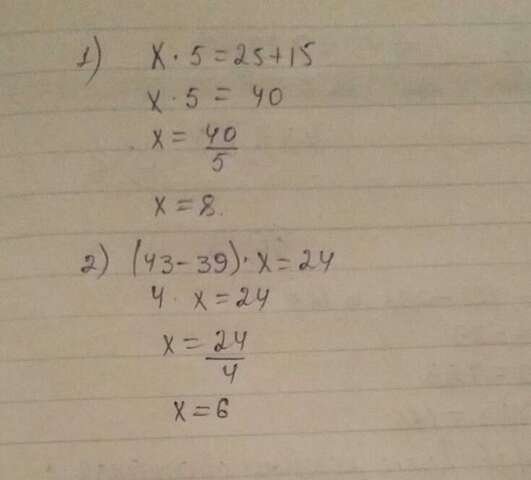 1) x · 5 = 25 + 15
x · 5 = 40
x = 40/5
x = 8.
2) (43 - 39) · x = 24
4 · x = 24
x = 24/4
x = 6